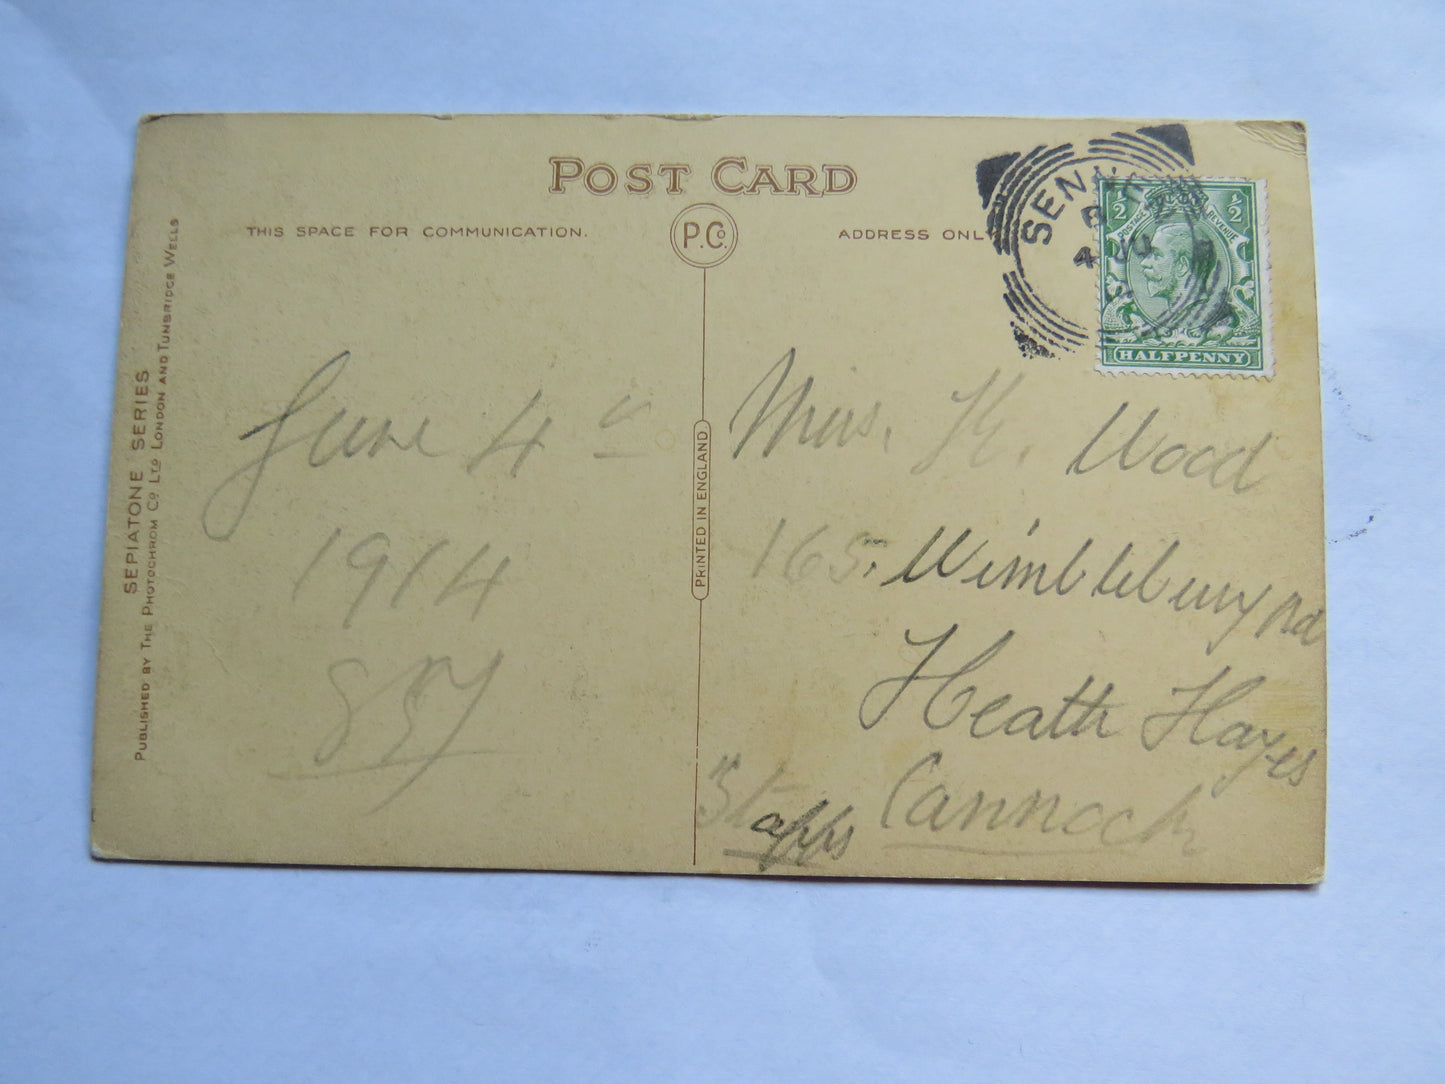 POST CARD
THIS SPACE FOR COMMUNICATION.
P.Co
ADDRESS ONL
SENN
4 JU
½ ½
POSTAGE REVENUE
HALFPENNY
SEPIATONE SERIES
PUBLISHED BY THE PHOTOCHROM CO LTD LONDON AND TUNBRIDGE WELLS
PRINTED IN ENGLAND
June 4th
1914
Miss. K. Wood
165, Wimblebury Rd
Heath Hayes
Cannock
Staffs